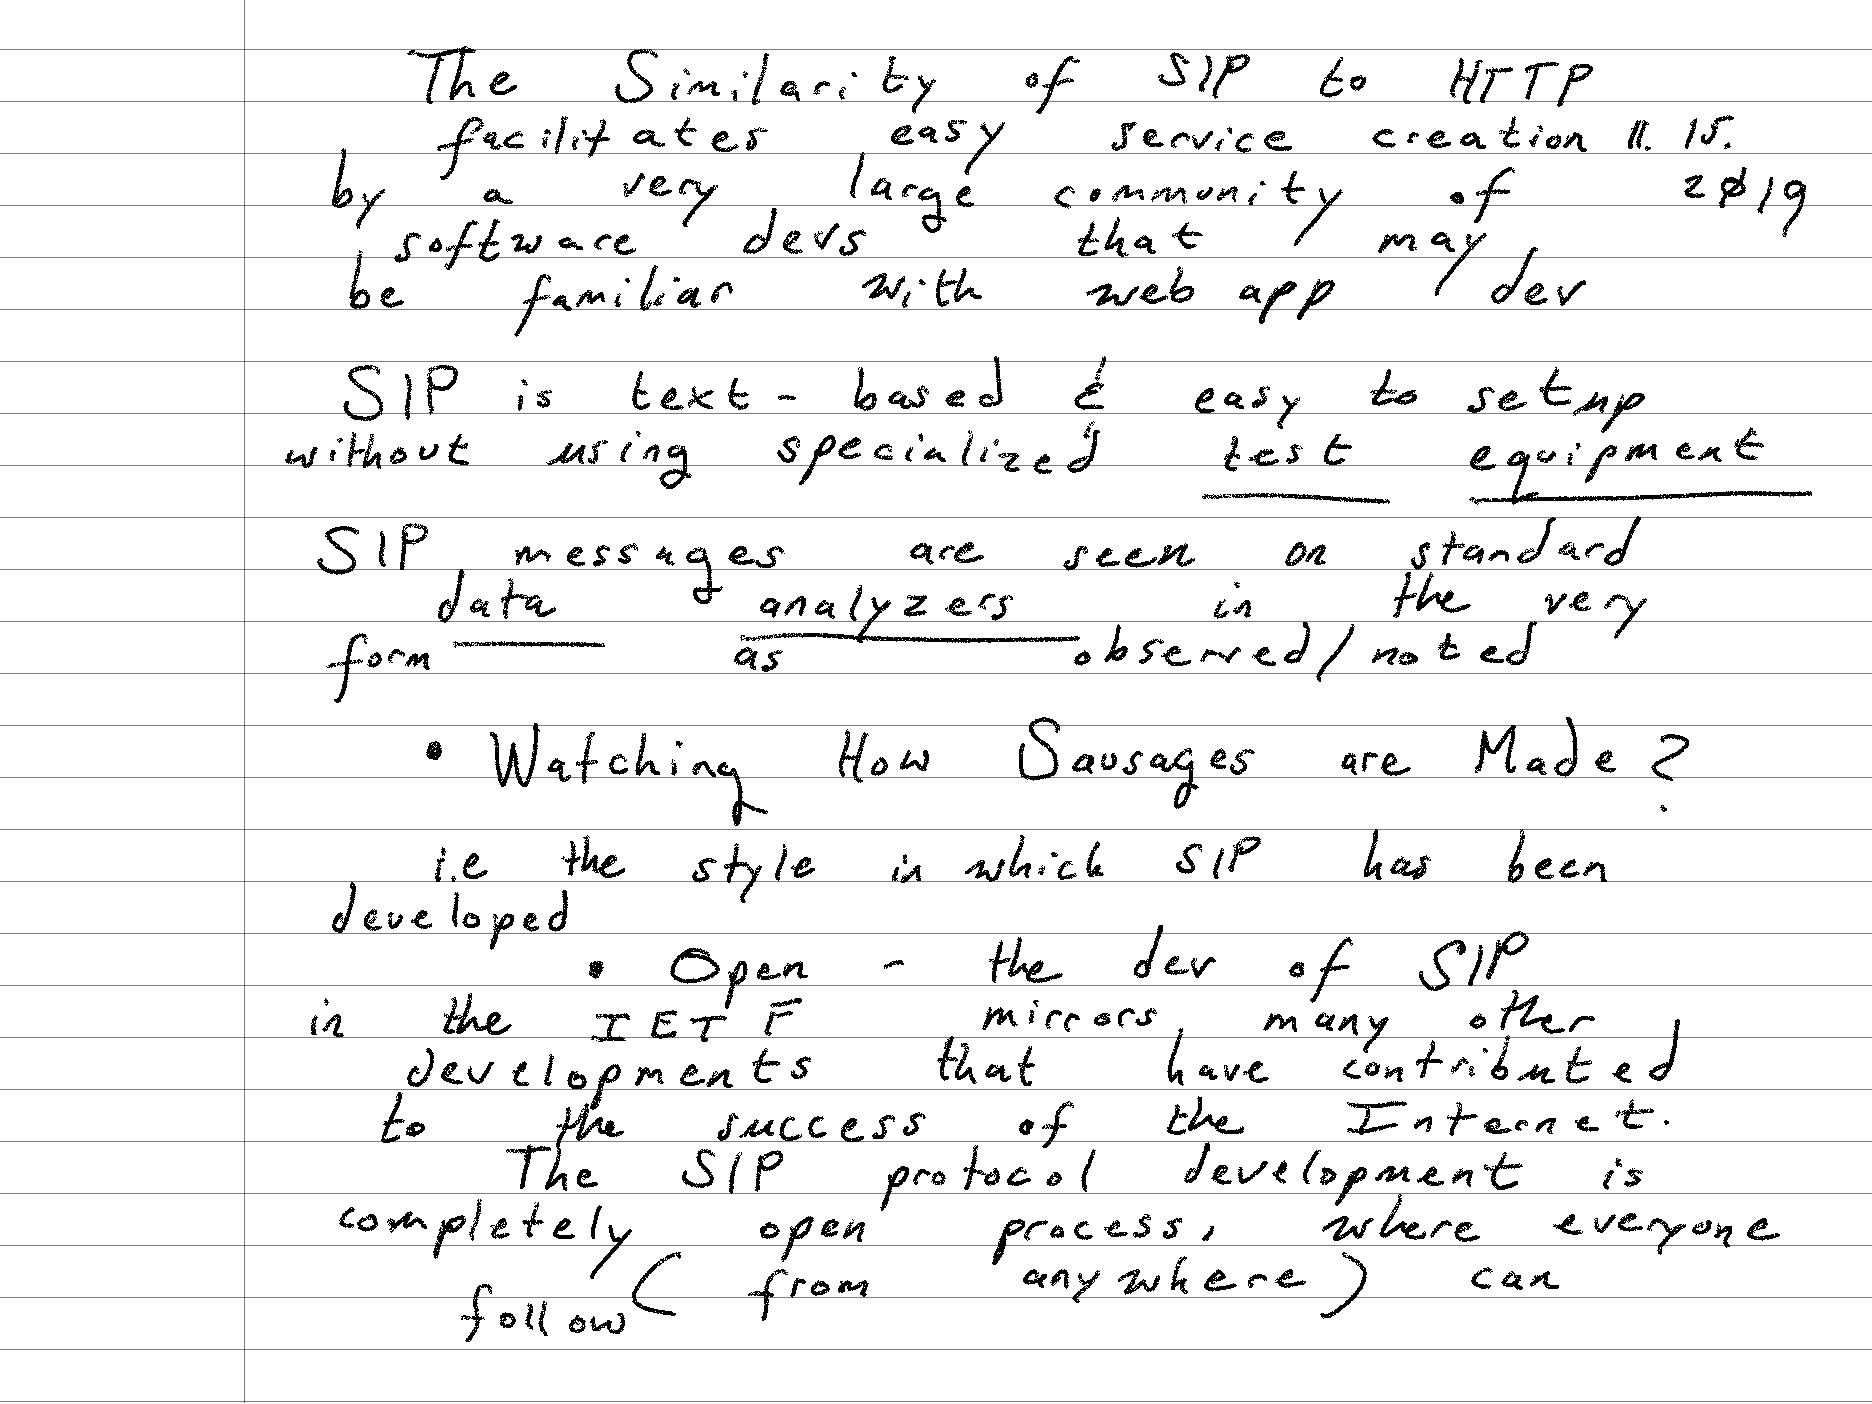 The Similarity of SIP to HTTP
facilitates easy service creation 11. 15.
by a very large community of 2019
software devs that may
be familiar with web app dev
SIP is text - based & easy to setup
without using specialized test equipment
SIP messages are seen on standard
data analyzers in the very
form as observed/noted
• Watching How Sausages are Made?
i.e the style in which SIP has been
developed
• Open - the dev of SIP
in the IETF mirrors many other
developments that have contributed
to the success of the Internet.
The SIP protocol development is
completely open process, where everyone
follow (from anywhere) can